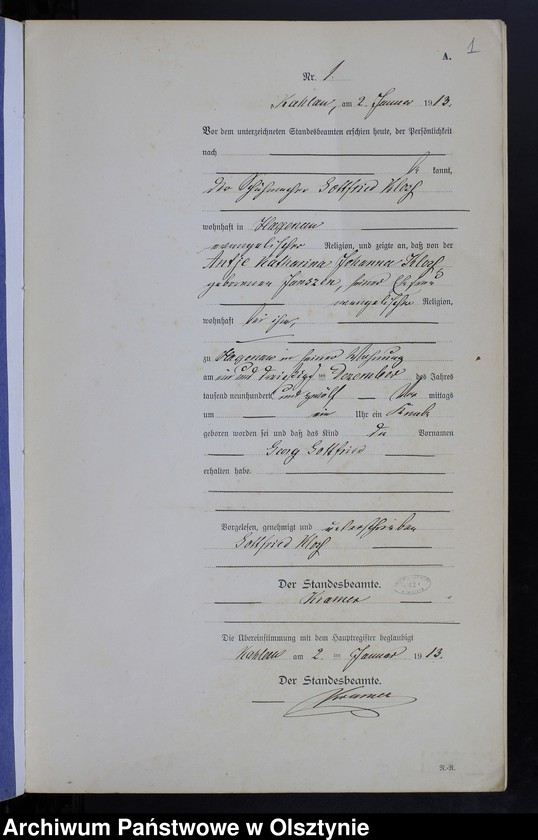 1
A.
Nr. 1.
Kahlau, am 2. Januar 1913.
Vor dem unterzeichneten Standesbeamten erschien heute, der Persönlichkeit
nach
be kannt,
der Schuhmacher Gottfried
wohnhaft in Hagenau
evangelischer Religion, und zeigte an, daß von der
Antje Katharina Johanna
geborenen Janszen, seiner Ehefrau
evangelischer Religion,
wohnhaft bei ihm,
zu Hagenau in seiner Wohnung
am ein und dreißigsten Dezember des Jahres
tausend neunhundert und zwölf Vor mittags
um ein Uhr ein Knabe
geboren worden sei und daß das Kind die Vornamen
Georg Gottfried
erhalten habe.
Vorgelesen, genehmigt und unterschrieben
Gottfried
Der Standesbeamte.
Kramer
Die Übereinstimmung mit dem Hauptregister beglaubigt
Kahlau am 2. ten Januar 1913.
Der Standesbeamte.
Kramer
R.-R.
Archiwum Państwowe w Olsztynie